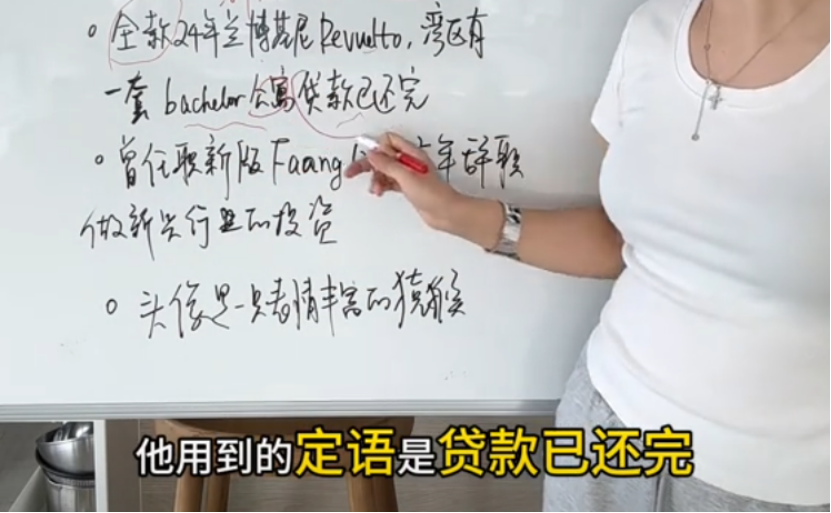 全款24年兰博基尼Revuelto，湾区有
一套bachelor公寓贷款已还完
曾任职新版Faang 年辞职
做新兴行业的投资
头像是一只表情丰富的猿猴
他用到的定语是贷款已还完